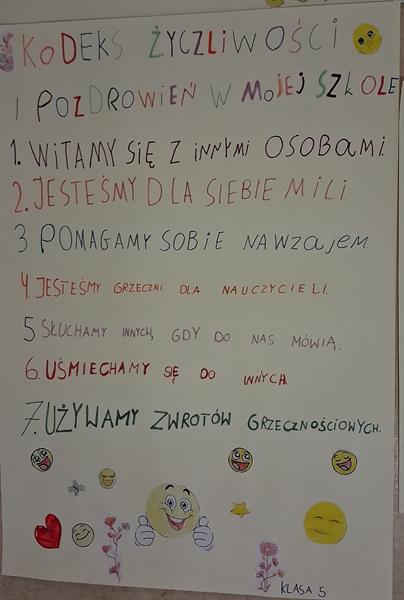 KODEKS ŻYCZLIWOŚCI
I POZDROWIEŃ W MOJEJ SZKOLE
1. WITAMY SIĘ Z INNYMI OSOBAMI.
2. JESTEŚMY DLA SIEBIE MILI.
3 POMAGAMY SOBIE NAWZAJEM.
4. JESTEŚMY GRZECZNI DLA NAUCZYCIELI.
5 SŁUCHAMY INNYCH, GDY DO NAS MÓWIĄ.
6. UŚMIECHAMY SIĘ DO INNYCH
7. UŻYWAMY ZWROTÓW GRZECZNOŚCIOWYCH.
KLASA 5